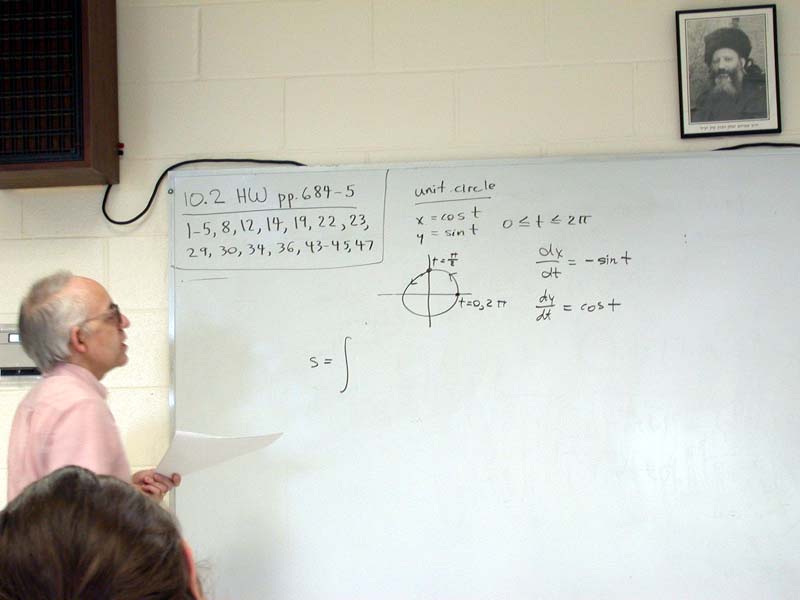 10.2 HW pp.684-5
1-5, 8, 12, 14, 19, 22, 23,
29, 30, 34, 36, 43-45, 47
unit circle
x = cos t
y = sin t
0 ≤ t ≤ 2π
t = π/2
t=0, 2π
dx/dt = -sin t
dy/dt = cos t
s = ∫